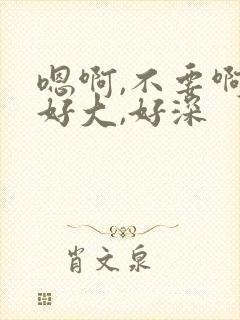 嗯啊,不要啊
好大,好深
肖文泉